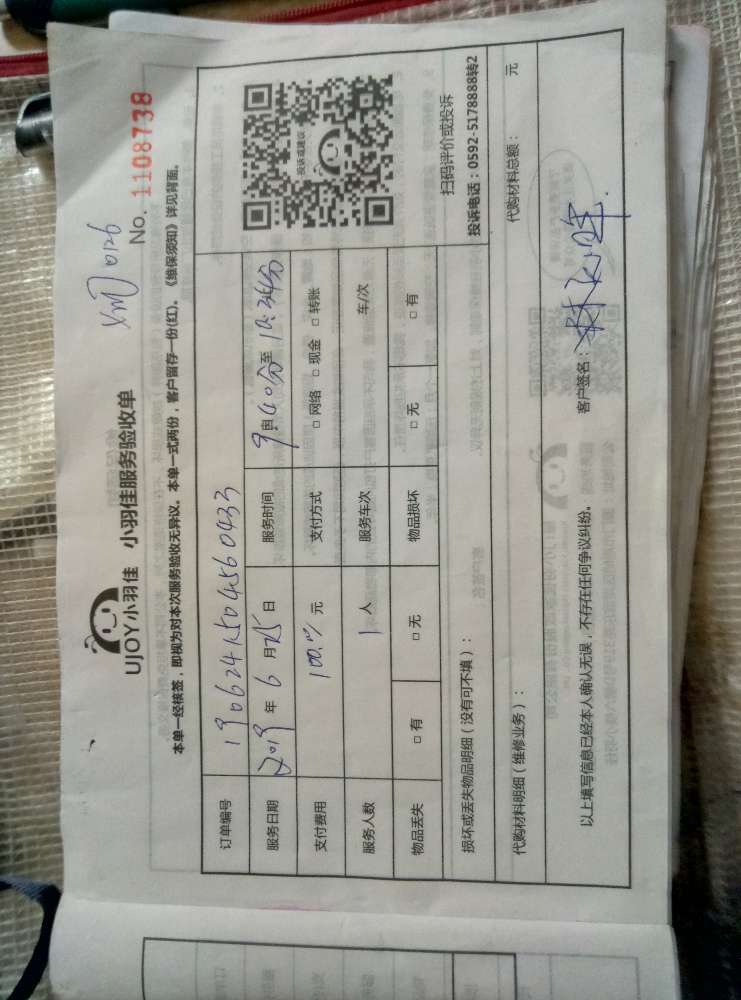 XM 0126
UJOY小羽佳 小羽佳服务验收单 No. 1108738
本单一经核签，即视为对本次服务验收无异议。本单一式两份，客户留存一份(红)。《维保须知》详见背面。
订单编号 190624150456 0433
服务日期 2019 年 6 月 25 日 服务时间 9时40分至 10:36分
支付费用 100.00 元 支付方式 □ 网络 □ 现金 □ 转账
服务人数 1 人 服务车次 车/次
物品丢失 □ 有 □ 无 物品损坏 □ 无 □ 有
投诉或建议
扫码评价或投诉
投诉电话：0592-5178888转2
损坏或丢失物品明细（没有可不填）：
代购材料明细（维修业务）： 代购材料总额： 元
以上填写信息已经本人确认无误，不存在任何争议纠纷。 客户签名：